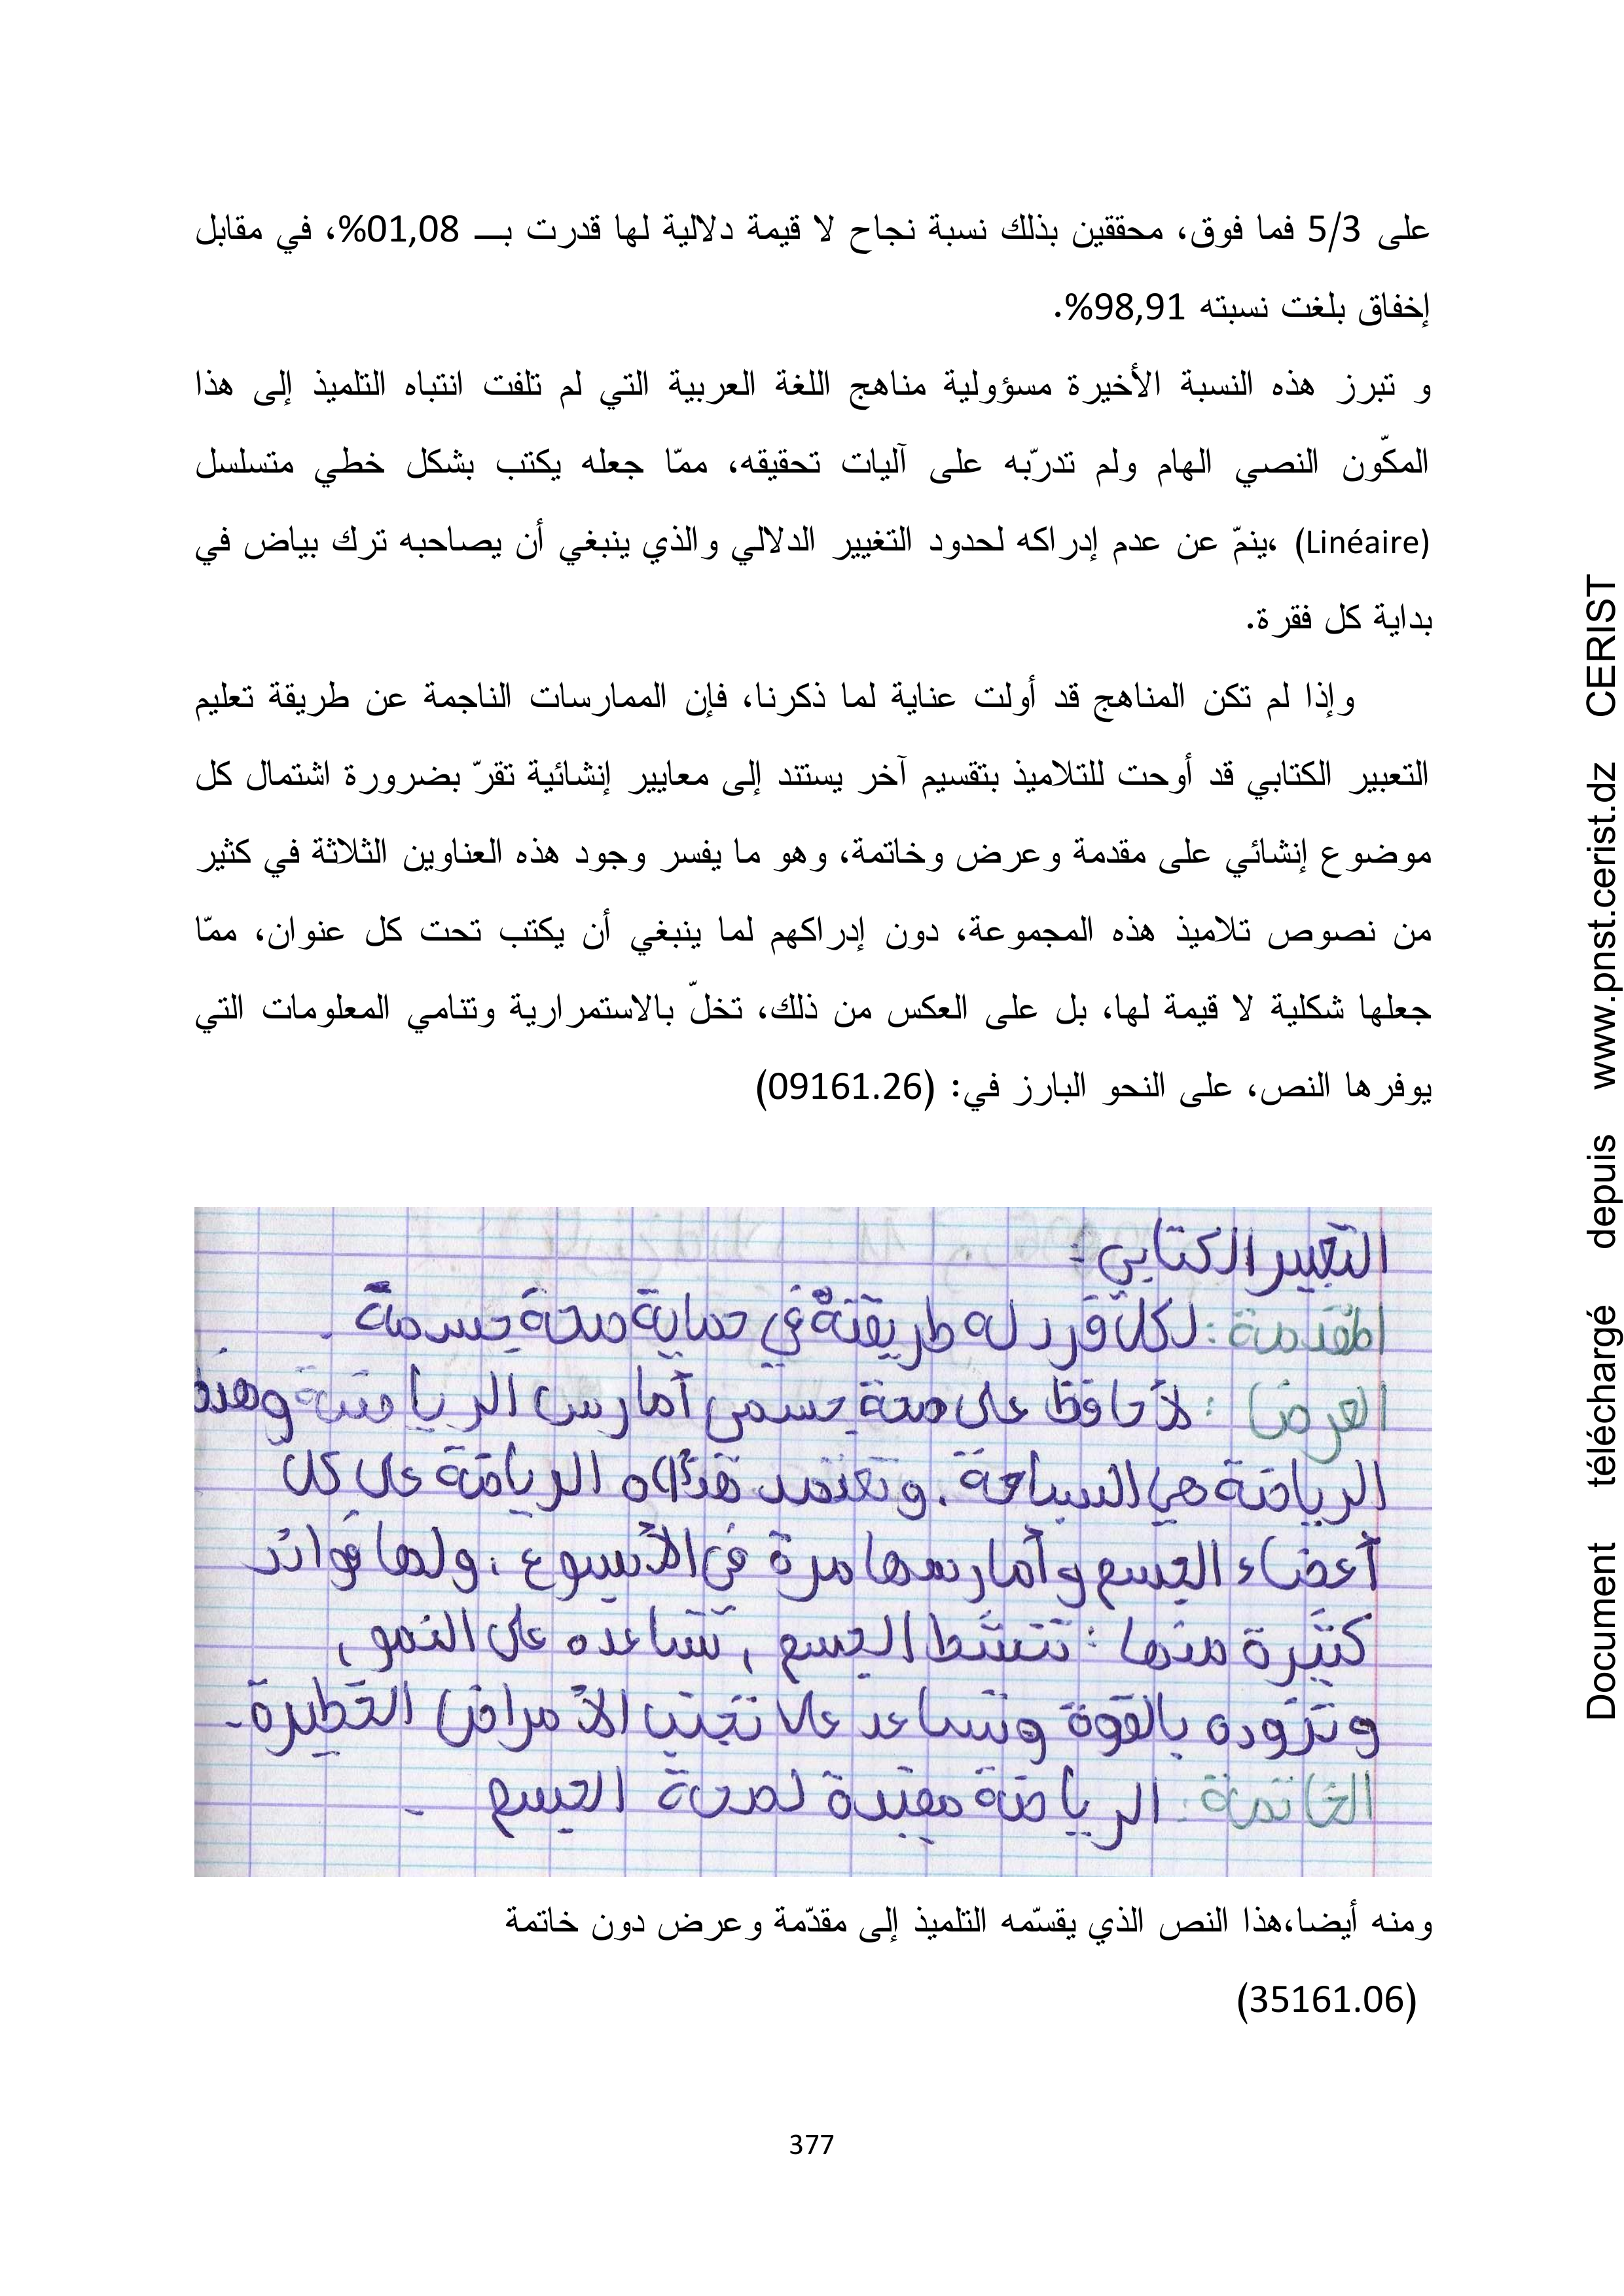 على 5/3 فما فوق، محققين بذلك نسبة نجاح لا قيمة دلالية لها قدرت بـــ 01,08%، في مقابل
إخفاق بلغت نسبته 98,91%.
و تبرز هذه النسبة الأخيرة مسؤولية مناهج اللغة العربية التي لم تلفت انتباه التلميذ إلى هذا
المكّون النصي الهام ولم تدرّبه على آليات تحقيقه، ممّا جعله يكتب بشكل خطي متسلسل
(Linéaire) ،ينمّ عن عدم إدراكه لحدود التغيير الدلالي والذي ينبغي أن يصاحبه ترك بياض في
بداية كل فقرة.
وإذا لم تكن المناهج قد أولت عناية لما ذكرنا، فإن الممارسات الناجمة عن طريقة تعليم
التعبير الكتابي قد أوحت للتلاميذ بتقسيم آخر يستند إلى معايير إنشائية تقرّ بضرورة اشتمال كل
موضوع إنشائي على مقدمة وعرض وخاتمة، وهو ما يفسر وجود هذه العناوين الثلاثة في كثير
من نصوص تلاميذ هذه المجموعة، دون إدراكهم لما ينبغي أن يكتب تحت كل عنوان، ممّا
جعلها شكلية لا قيمة لها، بل على العكس من ذلك، تخلّ بالاستمرارية وتنامي المعلومات التي
يوفرها النص، على النحو البارز في: (09161.26)
التعبير الكتابي :
المقدمة : لكل فرد له طريقتة في حماية صحة جسمة .
العرض : لأحافظ على صحة جسمي أمارس الرياضة وهذه
الرياضة هي السباحة . وتعتمد هذه الرياضة على كل
أعضاء الجسم وأمارسها مرة في الأسبوع ، ولها فوائد
كثيرة منها : تنشط الجسم ، تساعده على النمو ،
وتزوده بالقوة وتساعد على تجنب الأمراض الخطيرة .
الخاتمة : الرياضة مفيدة لصحة الجسم .
ومنه أيضا،هذا النص الذي يقسّمه التلميذ إلى مقدّمة وعرض دون خاتمة
(35161.06)
377
Document téléchargé depuis www.pnst.cerist.dz CERIST